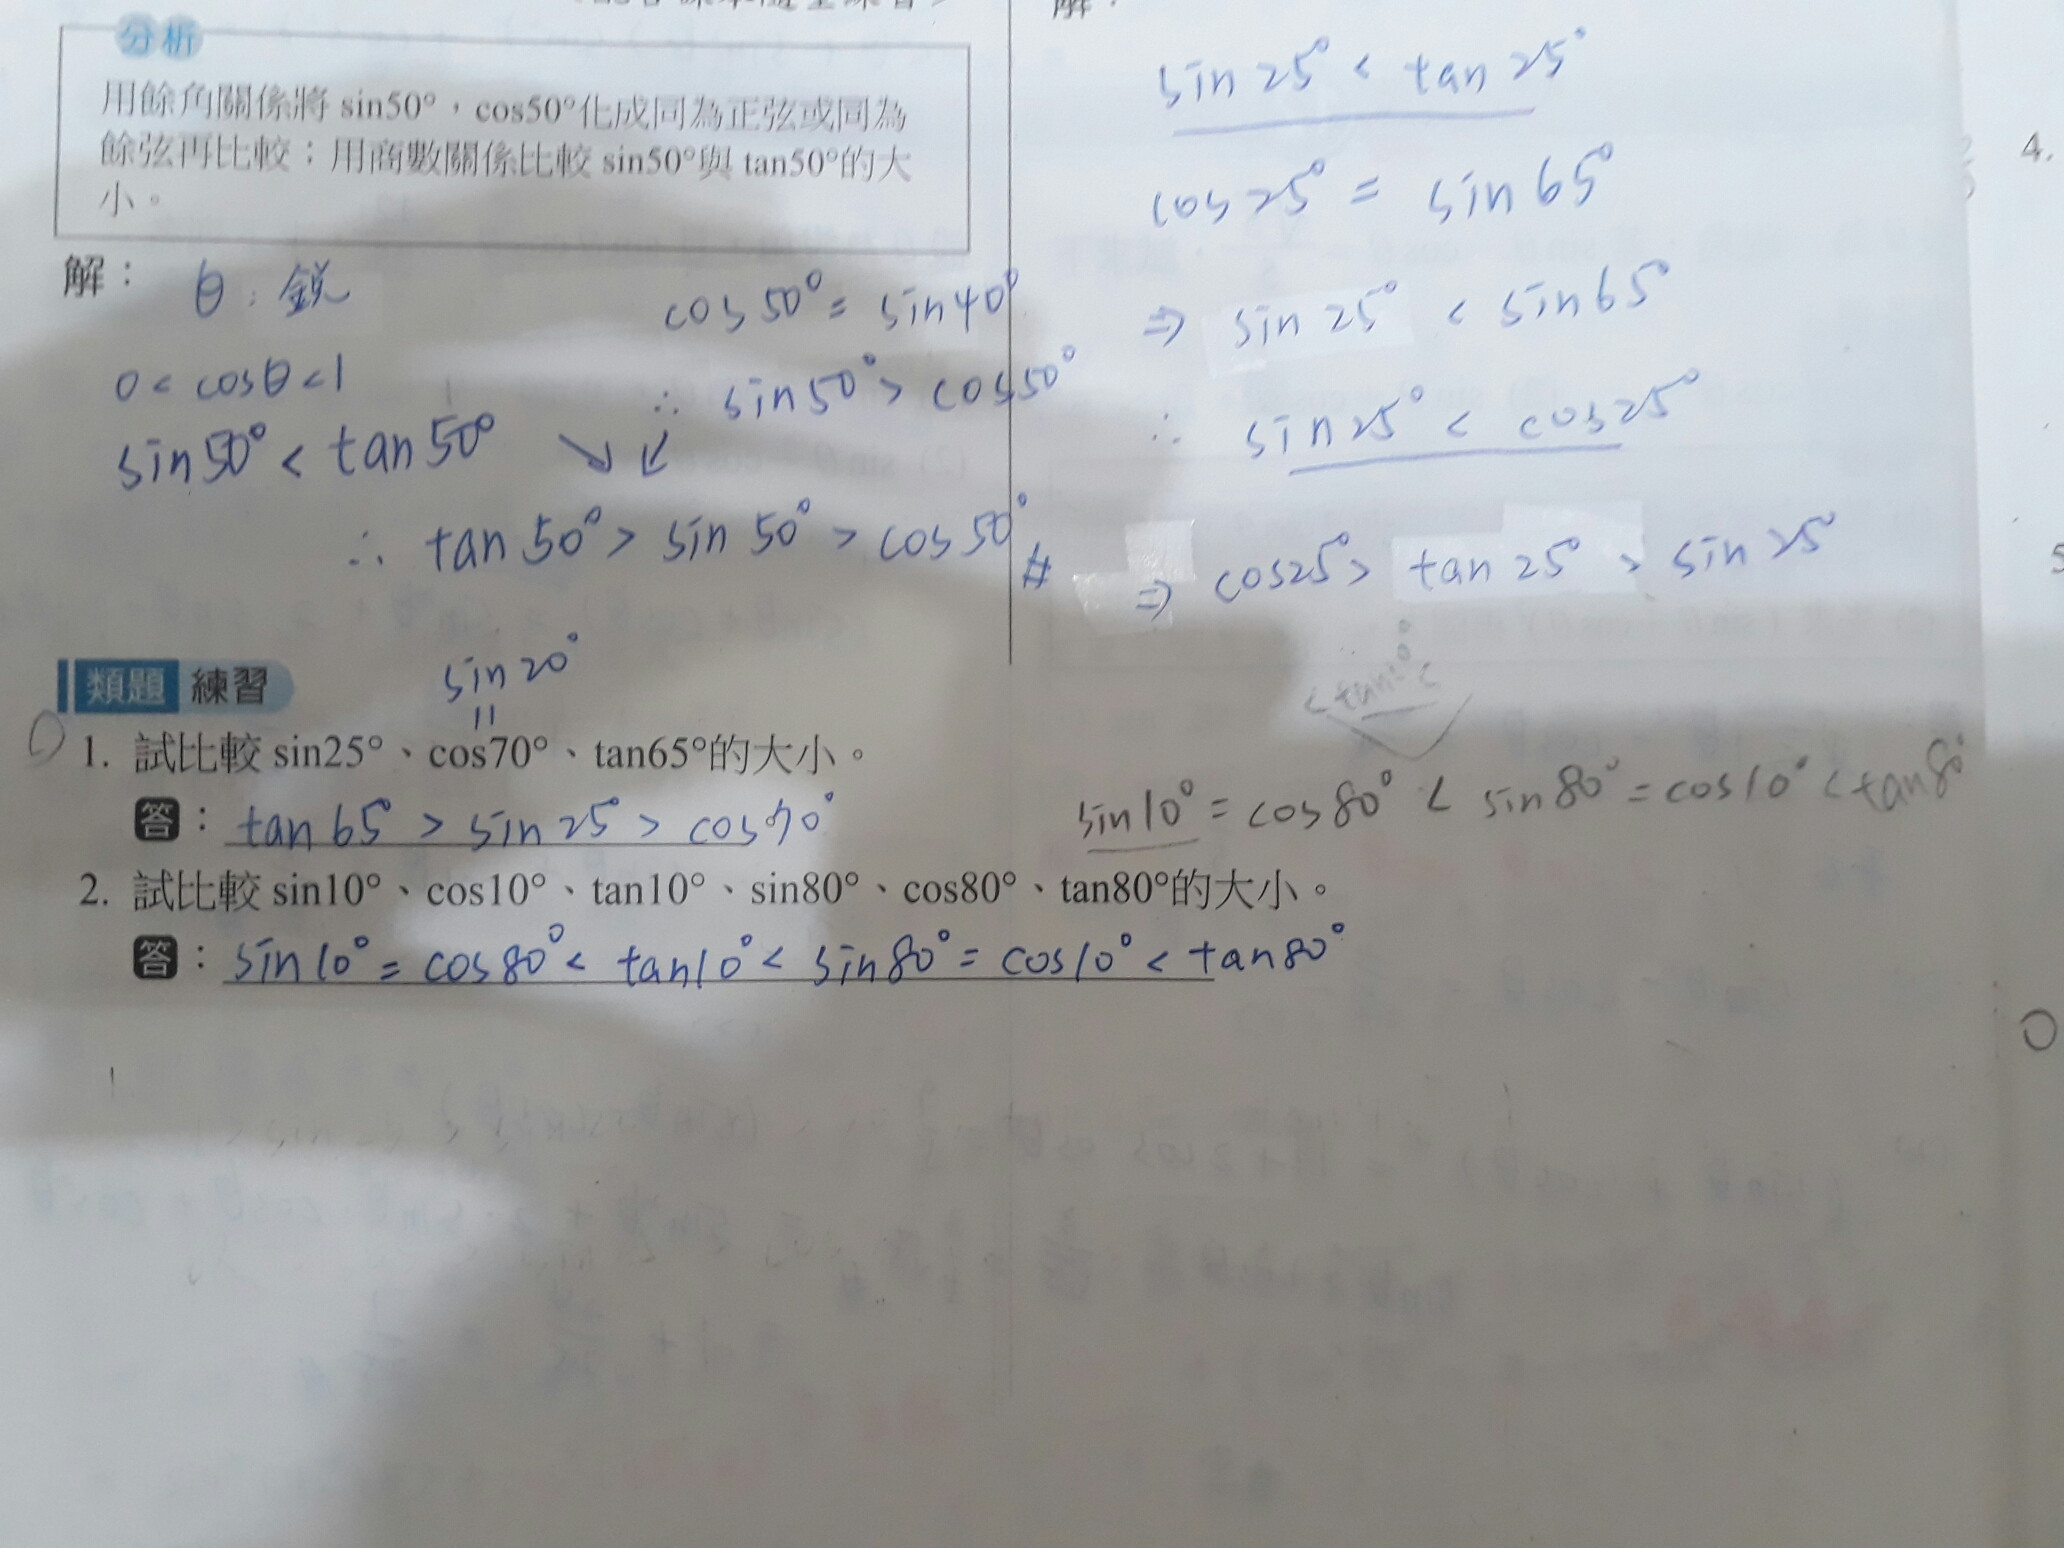 分析
用餘角關係將 sin50°,cos50°化成同為正弦或同為
餘弦再比較;用商數關係比較 sin50°與 tan50°的大
小。
解: θ:銳
cos50° = sin40°
0 < cosθ < 1
∴ sin50° > cos50°
sin50° < tan50°
∴ tan50° > sin50° > cos50° #
解:
sin25° < tan25°
cos25° = sin65°
⇒ sin25° < sin65°
∴ sin25° < cos25°
⇒ cos25° > tan25° > sin25°
4.
5
類題 練習
sin20°
=
1. 試比較 sin25°、cos70°、tan65°的大小。
答: tan65° > sin25° > cos70°
sin10° = cos80° < sin80° = cos10° < tan80°
2. 試比較 sin10°、cos10°、tan10°、sin80°、cos80°、tan80°的大小。
答: sin10° = cos80° < tan10° < sin80° = cos10° < tan80°